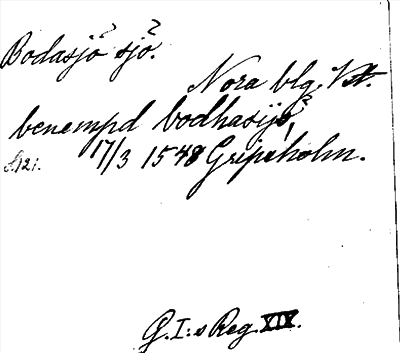 Bodasjö? sjö.?
Nora blg, Vst.
benempd bodhasijö?,
S. 121. 17/3 1548 Gripsholm.
G. I:s Reg. XIX.